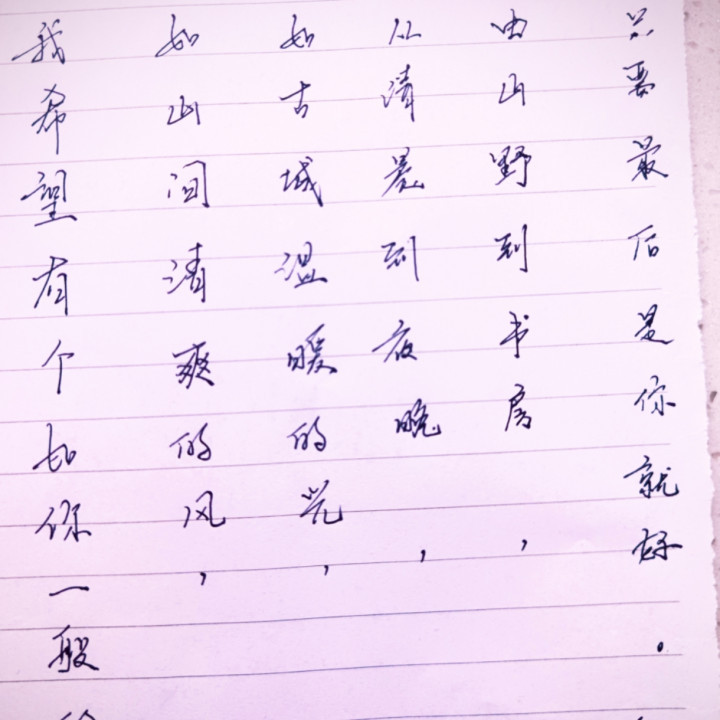 我希望有个如你一般
如山间清爽的风，
如古城温暖的光，
从清晨到夜晚，
由山野到书房，
只要最后是你就好.